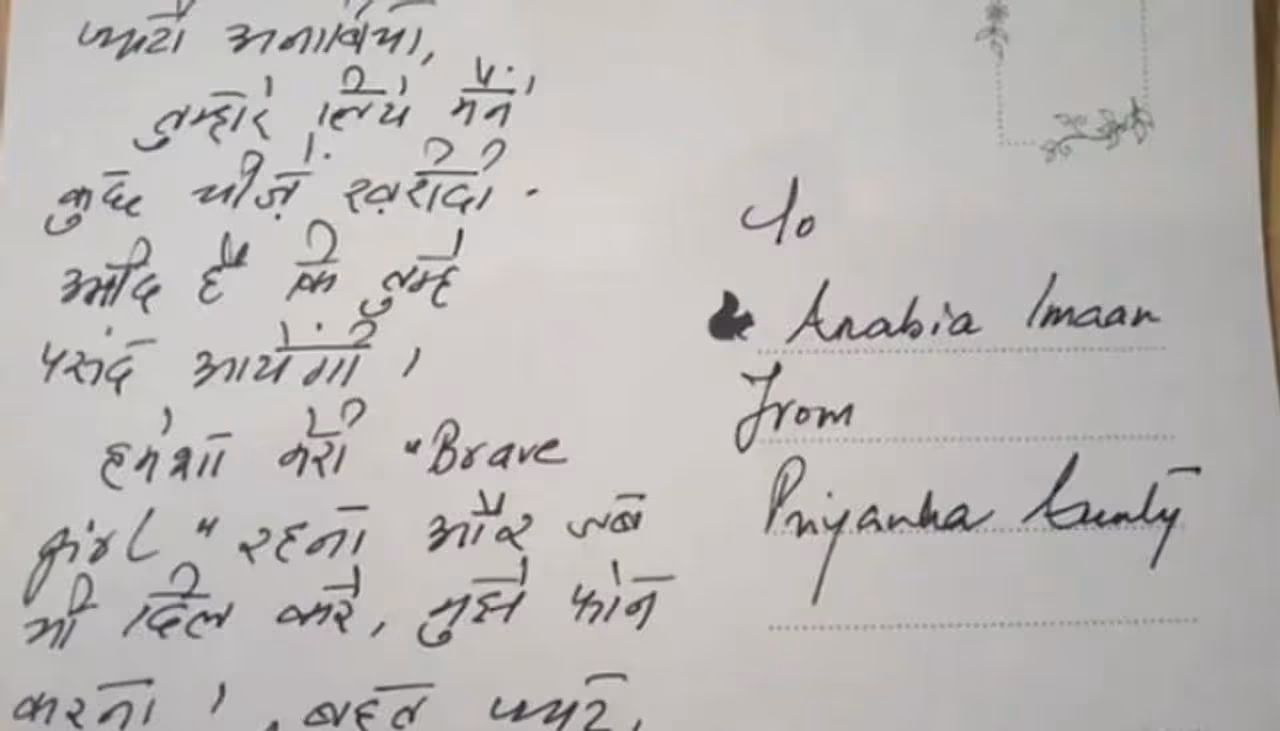 प्यारी अनाबिया,
तुम्हारे लिये मैंने
कुछ चीज़ें खरीदी .
है कि तुम्हे
पसंद आयेंगी ।
हमेशा मेरी "Brave
girl" रहना और जब
भी दिल करे, मुझे फोन
करना । बहुत प्यार,
To
Anabia Imaan
From
Priyanka Aunty